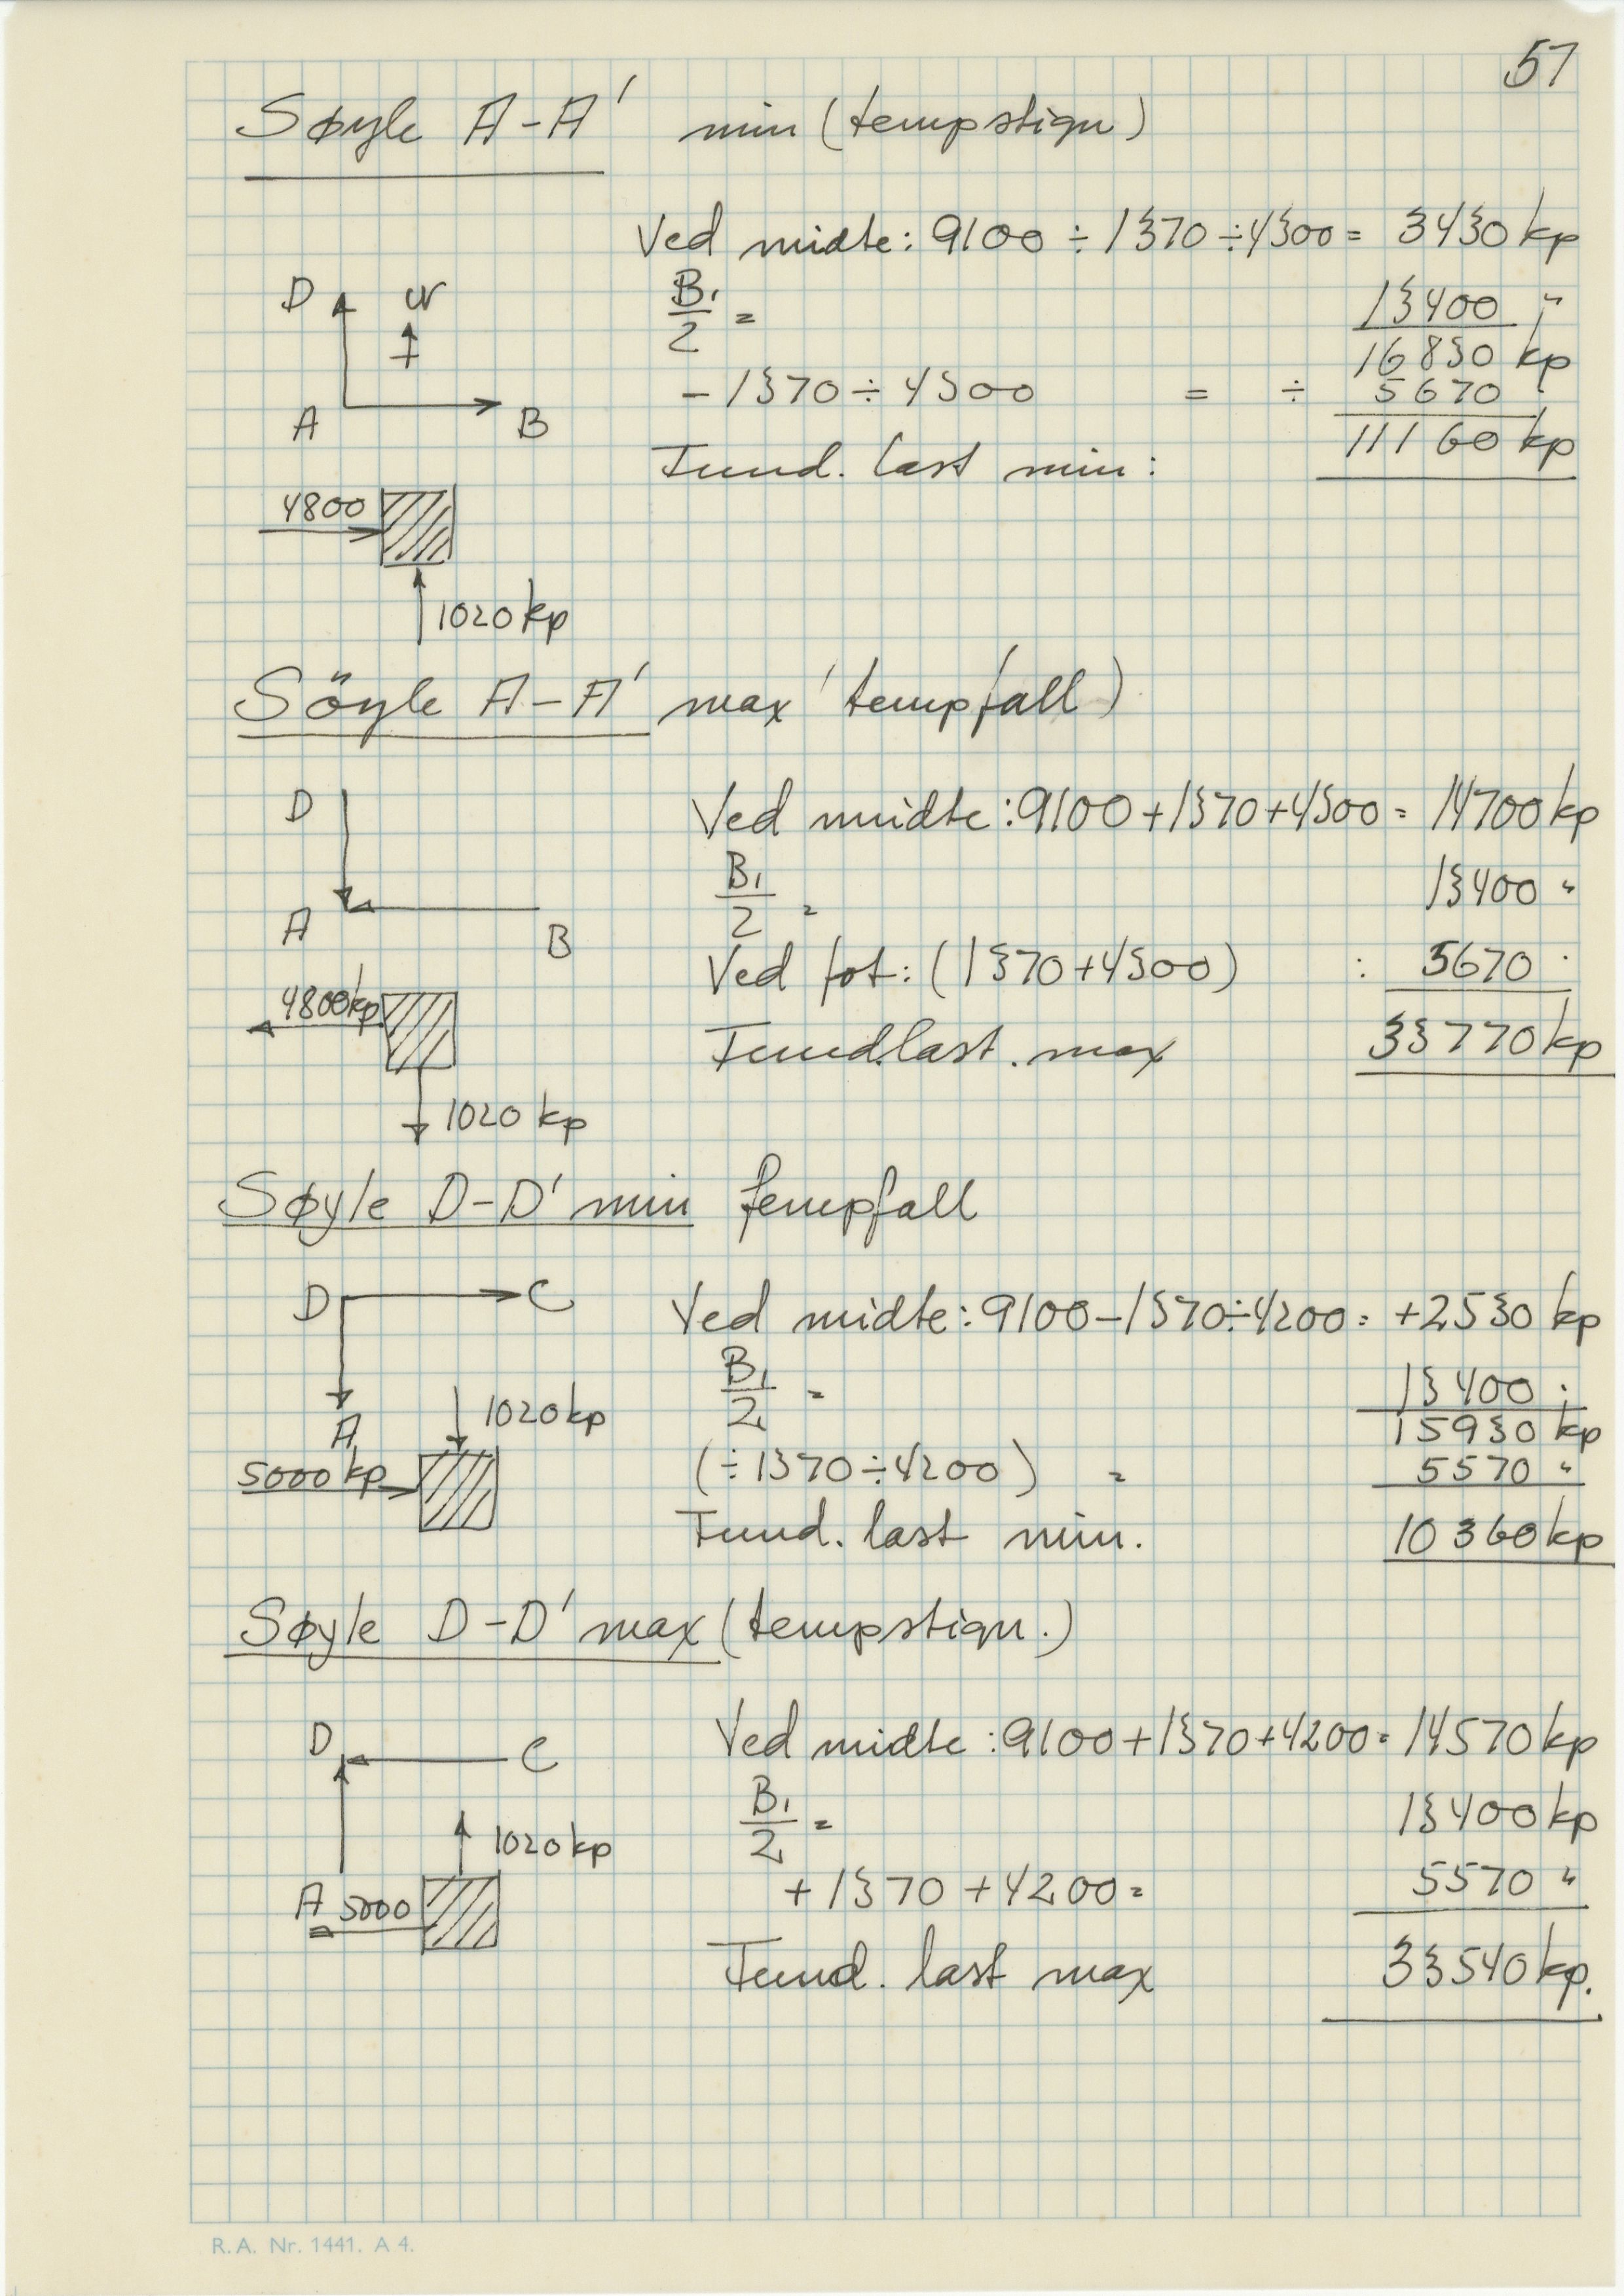 57
Søyle A-A' min (tempstign)
Ved midte: 9100 ÷ 1370 ÷ 4300 = 3430 kp
D
B₁/2 = 13400 "
16830 kp
A B
- 1370 ÷ 4300 = ÷ 5670
Fund. last min: 11160 kp
4800
1020 kp
Söyle A-A' max (tempfall)
D
Ved midte: 9100+1370+4300 = 14700 kp
B₁/2 = 13400 "
A B
Ved fot: (1370+4300) : 5670 "
4800kp
Fundlast. max 33770 kp
1020 kp
Søyle D-D' min tempfall
D C
Ved midte: 9100-1370÷4200 = +2530 kp
B₁/2 = 13400 "
A
1020 kp
15930 kp
5000 kp
(÷1370÷4200) = 5570 "
Fund. last min. 10360 kp
Søyle D-D' max (tempstign.)
D C
Ved midte: 9100+1370+4200 = 14570 kp
B₁/2 = 13400 kp
1020 kp
A 5000
+1370+4200= 5570 "
Fund. last max 33540 kp.
R.A. Nr. 1441. A 4.